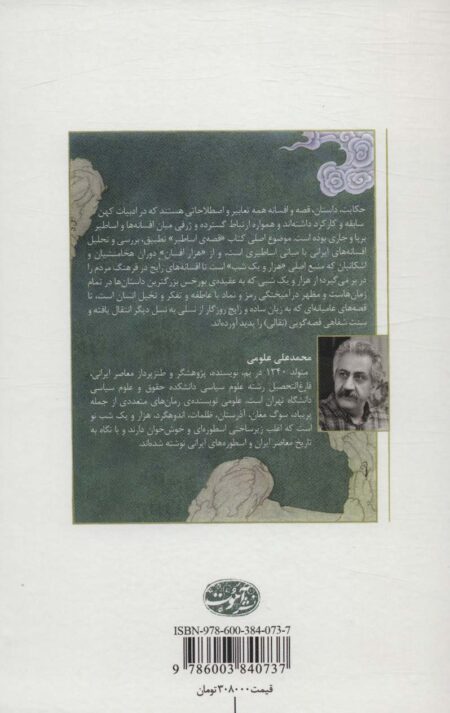 حکایت، داستان، قصه و افسانه همه تعابیر و اصطلاحاتی هستند که در ادبیات کهن
سابقه و کارکرد داشته‌اند و همواره ارتباط گسترده و ژرفی میان افسانه‌ها و اساطیر
برپا و جاری بوده است. موضوع اصلی کتاب «قصه‌ی اساطیر» تطبیق، بررسی و تحلیل
افسانه‌های ایرانی با مبانی اساطیری است، و از «هزار افسان» دوران هخامنشیان و
اشکانیان که منبع اصلی «هزار و یک شب» است تا افسانه‌های رایج در فرهنگ مردم را
در بر می‌گیرد؛ از هزار و یک شبی که به عقیده‌ی بورخس بزرگترین داستان‌ها در تمام
زمان‌هاست و مظهر درآمیختگی رمز و نماد با عاطفه و تفکر و تخیل انسان است، تا
قصه‌های عامیانه‌ای که به زبان ساده و رایج روزگار از نسلی به نسل دیگر انتقال یافته و
سنت شفاهی قصه‌گویی (نقالی) را پدید آورده‌اند.
محمدعلی علومی
متولد ۱۳۴۰ در بم، نویسنده، پژوهشگر و طنزپرداز معاصر ایرانی،
فارغ‌التحصیل رشته علوم سیاسی دانشکده حقوق و علوم سیاسی
دانشگاه تهران است. علومی نویسنده‌ی رمان‌های متعددی از جمله
پریباد، سوگ مغان، آذرستان، ظلمات، اندوهگرد، هزار و یک شب نو
است که اغلب زیرساختی اسطوره‌ای و خوش‌خوان دارند و با نگاه به
تاریخ معاصر ایران و اسطوره‌های ایرانی نوشته شده‌اند.
ISBN-978-600-384-073-7
9 786003 840737
قیمت ۳۰۸۰۰۰ تومان